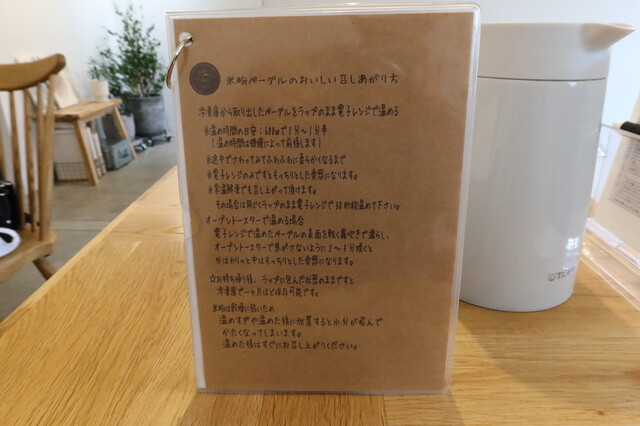 米粉ベーグルのおいしい召しあがり方
冷凍庫から取り出したベーグルをラップのまま電子レンジで温める
※温め時間の目安：600wで1分～1分半
（温め時間は機種によって前後します）
※途中でさわってみてふわふわに柔らかくなるまで
※電子レンジのみですともっちりとした食感になります。
※常温解凍でも召し上がって頂けます。
その場合は同じくラップのまま電子レンジで30秒程温めて下さい。
オーブントースターで温める場合
電子レンジで温めたベーグルの表面を軽く霧吹きで濡らし
オーブントースターで焦がさないように2～3分焼くと
外はカリッと中はもっちりとした食感になります。
☆お持ち帰り後、ラップに包んだ状態のままですと
冷凍庫で一ヶ月ほど保存可能です。
米粉は乾燥に弱いため
温めすぎや温めた後に放置すると水分が飛んで
かたくなってしまいます。
温めた後はすぐにお召し上がりください。
TIGER